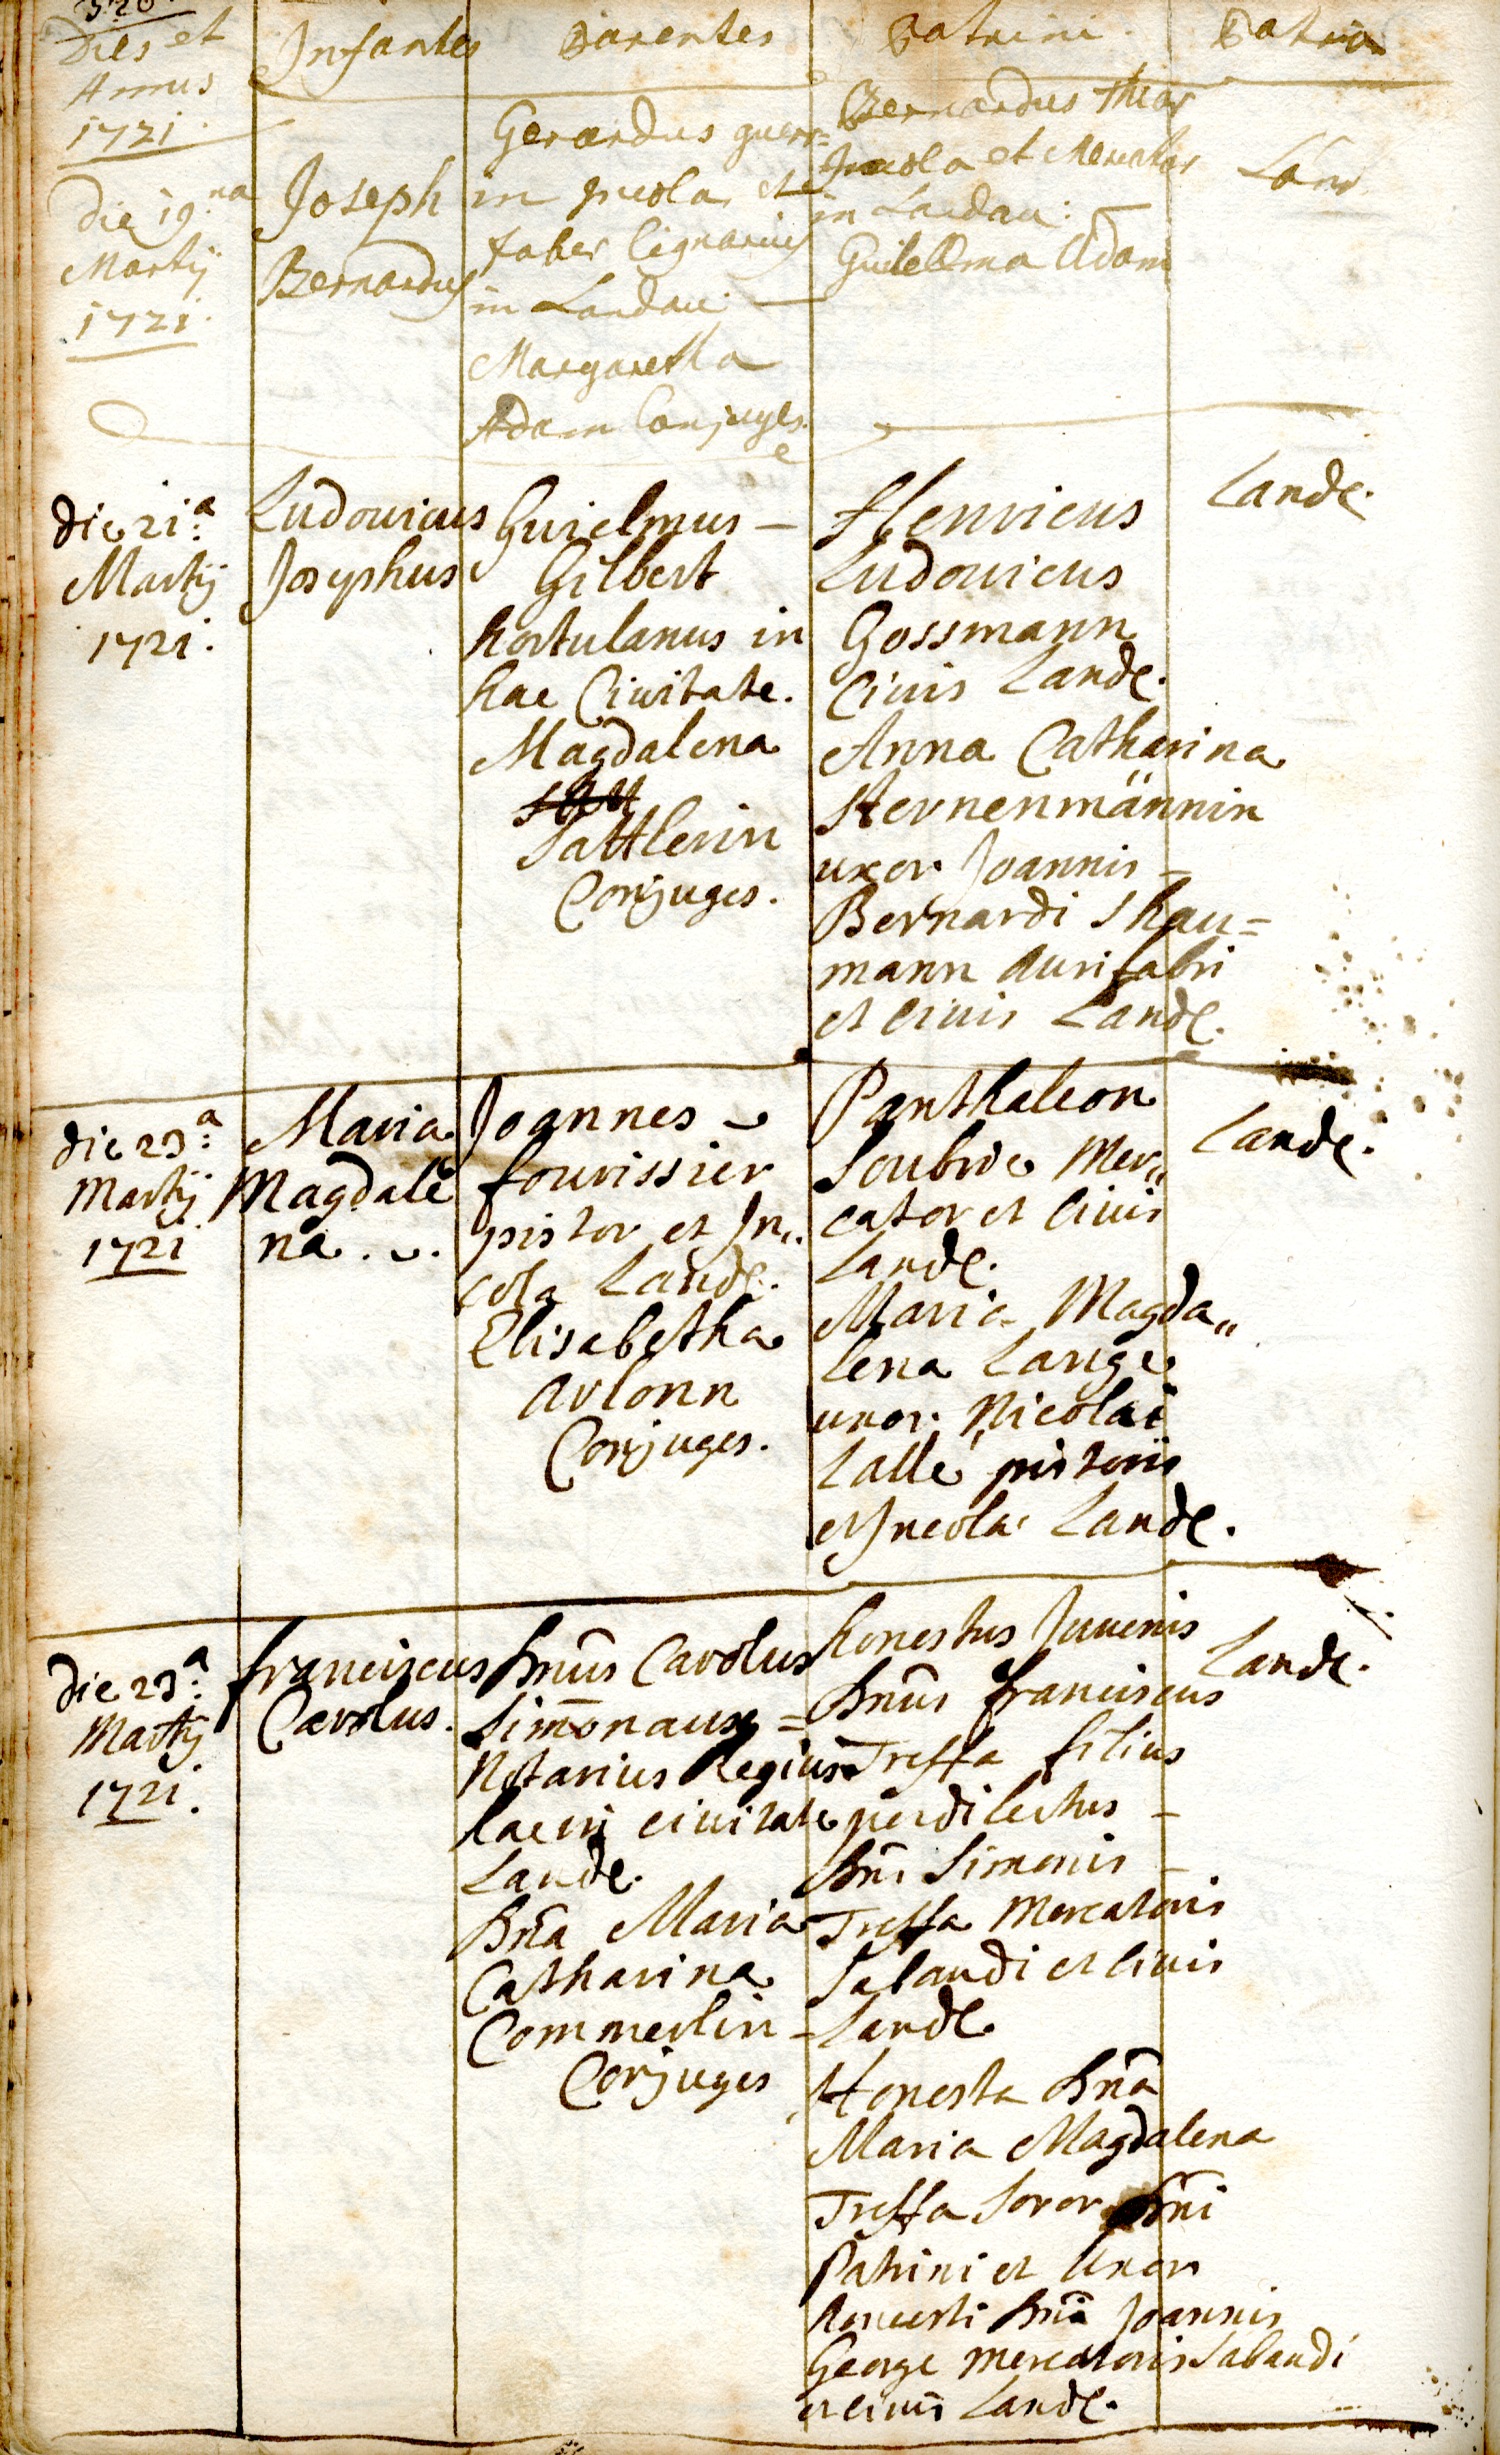 320.
Dies et
Annus
1721.
Infantes
Parentes
Patrini.
Patria
die 19.na
Martij
1721.
Joseph
Bernardus
Gerardus guer=
in Jncola et
faber lignarius
in Landau.
Margaretha
Adam Conjuges.
Bernardus
Jncola et Mercator
in Landau:
Guilelma Adam
die 21.a
Martij
1721.
Ludouicus
Josephus
Guielmus –
Gilbert
hortulanus in
hac Ciuitate.
Magdalena
Sattlerin
Conjuges.
Henricus
Ludouicus
Gossmann
Ciuis Lande.
Anna Catharina
Sternenmännin
uxor Joannis –
Bernardi Shau=
mann Aurifabri
et Ciuis Lande.
Lande.
die 23.a
Martij
1721
Maria
Magdale
na.
Joannes
fourissier
pistor et Jn„
cola Lande.
Elisabetha
Arlonn
Conjuges.
Panthaleon
Soubrie Mer„
cator et Ciuis
Lande.
Maria Magda„
lena Lange
uxor Nicolai
Lallé pistoris
et Jncola Lande.
Lande.
die 23.a
Martij
1721.
franciscus
Carolus.
Dnus Carolus
Simonaux =
Notarius Regius
hacin ciuitate
Lande.
Dna Maria
Catharina
Commerlin –
Conjuges
honestus Juuenis
Dnus franciscus
Treffa filius
perdilectus –
Dni Simonis –
Treffa Mercatoris
Sabaudi et Ciuis
Lande
Honesta Dna
Maria Magdalena
Treffa Soror Dni
Patrini et Uxor
honesti Dni Joannis
George mercatoris Sabaudi
et ciuis Lande.
Lande.